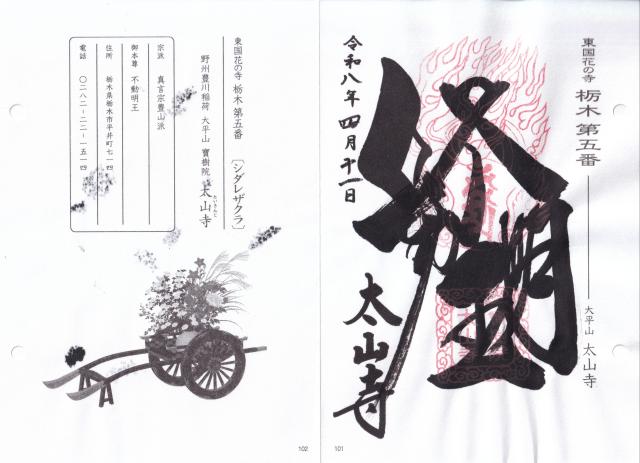 東国花の寺 栃木 第五番 大平山 太山寺
令和八年四月十一日
太山寺
101
東国花の寺 栃木第五番 〔シダレザクラ〕
野州豊川稲荷 大平山 寶樹院 太山寺
たいさんじ
宗派 真言宗豊山派
御本尊 不動明王
住所 栃木県栃木市平井町七一四
電話 〇二八二-二二-一五一四
102